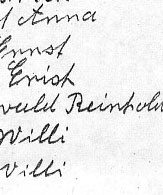 Anna
Ernst
Erich
wald Reinhold
Willi
Willi